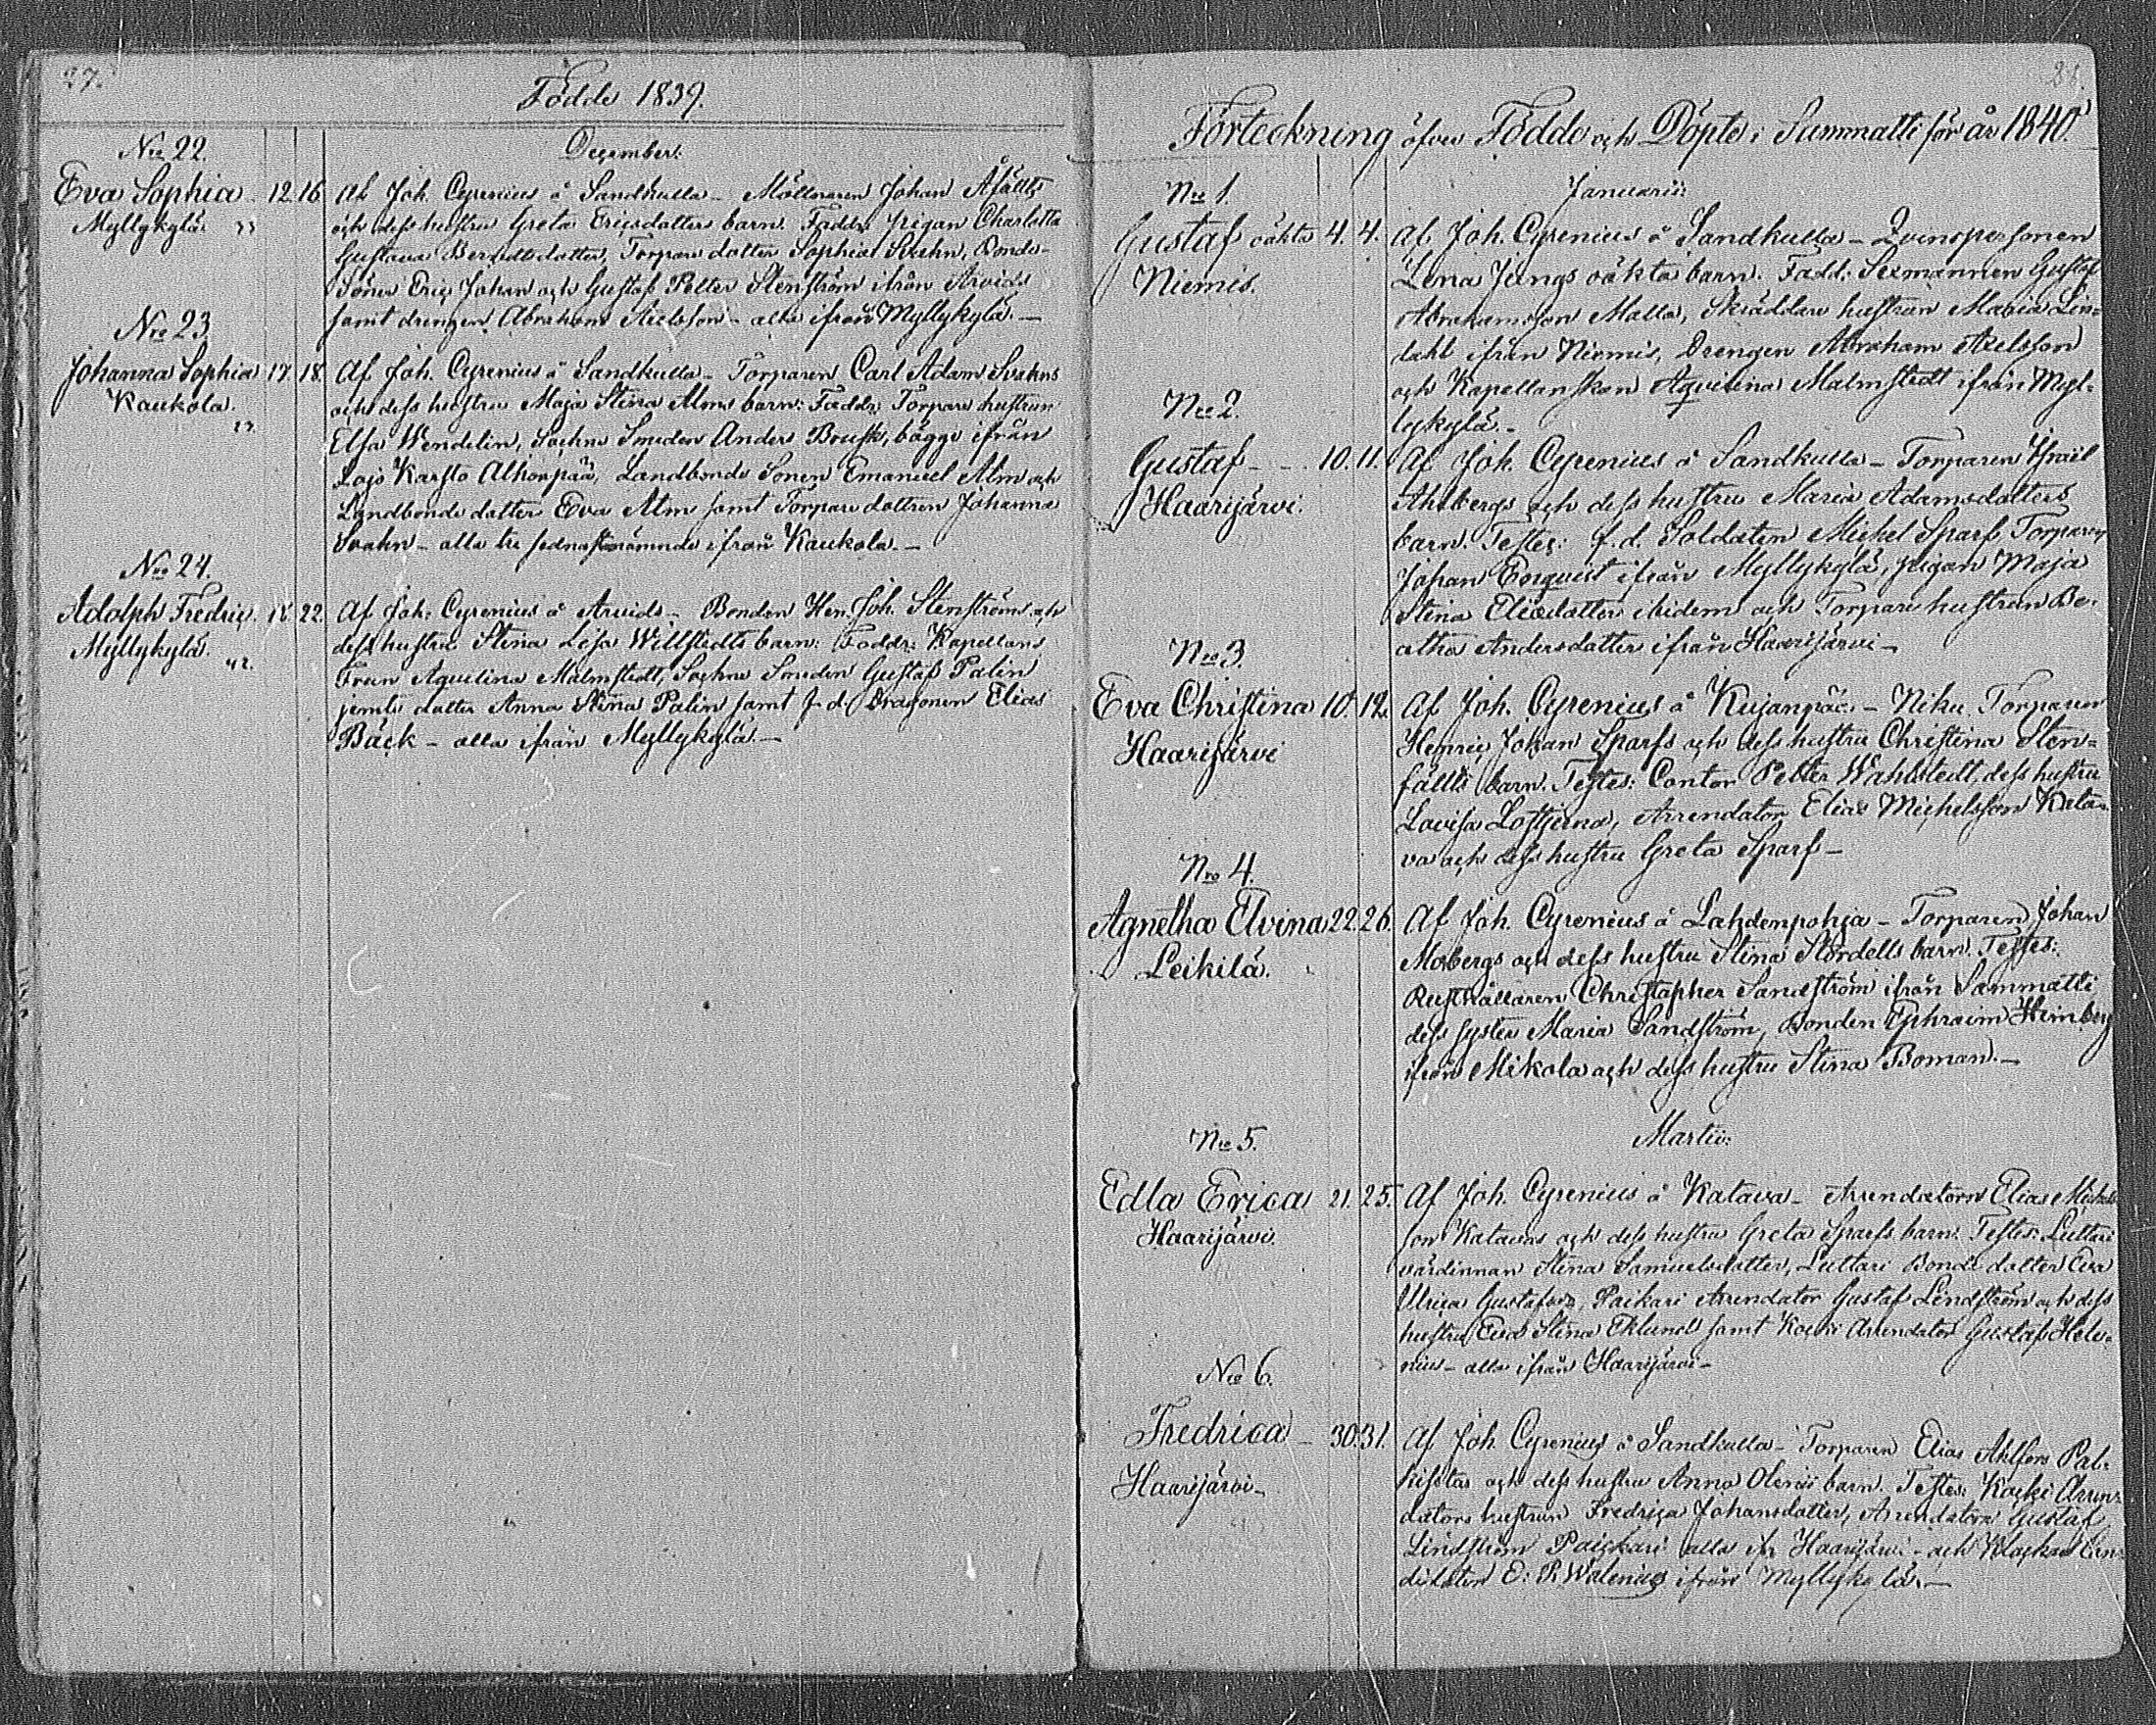 27.
Födde 1839.
December.
No 22.
Eva Sophia 12. 16. Af Joh. Cyrenius å Sandkulla - Möllnaren Johan
Myllykylä och dess hustru Greta Ericsdotters barn. Faddr: pigan Charlotta
Gustava Berndtsdotter, Torpare dotter Sophia Svahn, Bonde-
Söner Eric Johan och Gustaf Petter Stenström ifrån Arvids
samt drengen Abraham Axelsson - alla ifrån Myllykylä. -
No 23.
Johanna Sophia 17. 18. Af Joh. Cyrenius å Sandkulla - Torparen Carl Adam Svahns
Kaukola. och dess hustru Maja Stina Alms barn: Faddr: Torpare hustrun
Elsa Wendelin, Sochne Smeden Anders Brusk, bägge ifrån
Lojo Karsto Alhonpää, Landbonde Sonen Emanuel Alm och
Landbonde dotter Eva Alm samt Torpare dottren Johanna
Svahn - alla tre sednastnämnde ifrån Kaukola. -
No 24.
Adolph Fredric 18. 22. Af Joh. Cyrenius å Arvids - Bonden Hen. Joh. Stenströms och
Myllykylä. dess hustru Stina Lisa Willstedts barn: Faddr: Kapellans
Frun Aquilina Malmstedt, Sochne Smeden Gustaf Palin
jemte dotter Anna Stina Palin samt f. d. Dragonen Elias
Bäck - alla ifrån Myllykylä. -
28.
Förteckning öfver Födde och Döpte i Sammatti för år 1840.
Januarii:
No 1.
Gustaf oäkta 4. 4. Af Joh. Cyrenius å Sandkulla - Qvinspersonen
Niemis. Lena Jungs oäkta barn. Fadd: Sexmannen Gustaf
Abrahamsson Malla, Skräddare hustrun Maria Lin=
dahl ifrån Niemis, Drengen Abraham Axelsson
och Kapellanskan Aqvilina Malmstedt ifrån Myl-
lykylä. -
No 2.
Gustaf - - 10. 11. Af Joh. Cyrenius å Sandkulla - Torparen Israel
Haarijärvi. Ahlbergs och dess hustru Maria Adamsdotters
barn. Testes: f. d. Soldaten Michel Sparf, Torparen
Johan Enquist ifrån Myllykylä, pigan Maja
Stina Eliedotter ibidem och Torpare hustrun Be-
atha Andersdotter ifrån Haarijärvi -
No 3.
Eva Christina 10. 12. Af Joh. Cyrenius å Kujanpää - Niku Torparen
Haarijärvi Henric Johan Sparfs och dess hustru Christina Sten=
fällts barn. Testes: Cantor Petter Wahlstedt, dess hustru
Lovisa Lostjerna, Arrendator Elias Michelsson Kata-
va och dess hustru Greta Sparf -
No 4.
Agnetha Elvina 22. 26. Af Joh. Cyrenius å Lahdenpohja - Torparen Johan
Leikilä. Mobergs och dess hustru Stina Nordells barn. Testes:
Rusthållaren Christopher Sandström ifrån Sammatti
dess syster Maria Sandström, Bonden Ephraim Heinberg
ifrån Mikola och dess hustru Stina Boman. -
Martii:
No 5.
Edla Erica 21. 25. Af Joh. Cyrenius å Katava - Arrendatorn Elias Michels
Haarijärvi. son Katavas och dess hustru Greta Sparfs barn. Testes: Luttari
värdinnan Stina Samuelsdotter, Luttari Bonde dotter Eva
Ulrica Gustafsdr, Paikari Arrendator Gustaf Lindström och dess
hustru Eva Stina Eklund samt Koski Arrendator Gustaf Hele-
nius - alla ifrån Haarijärvi -
No 6.
Fredrica - 30. 31. Af Joh. Cyrenius å Sandkulla - Torparen Elias Ahlfors Pal-
Haarijärvi - kistas och dess hustru Anna Olenii barn. Testes: Koski Arren=
dators hustrun Fredrica Johansdotter, Arrendatorn Gustaf
Lindström Paickari alla ifr Haarijärvi - och Klockare
E: P. Walenius ifrån Myllykylä. -